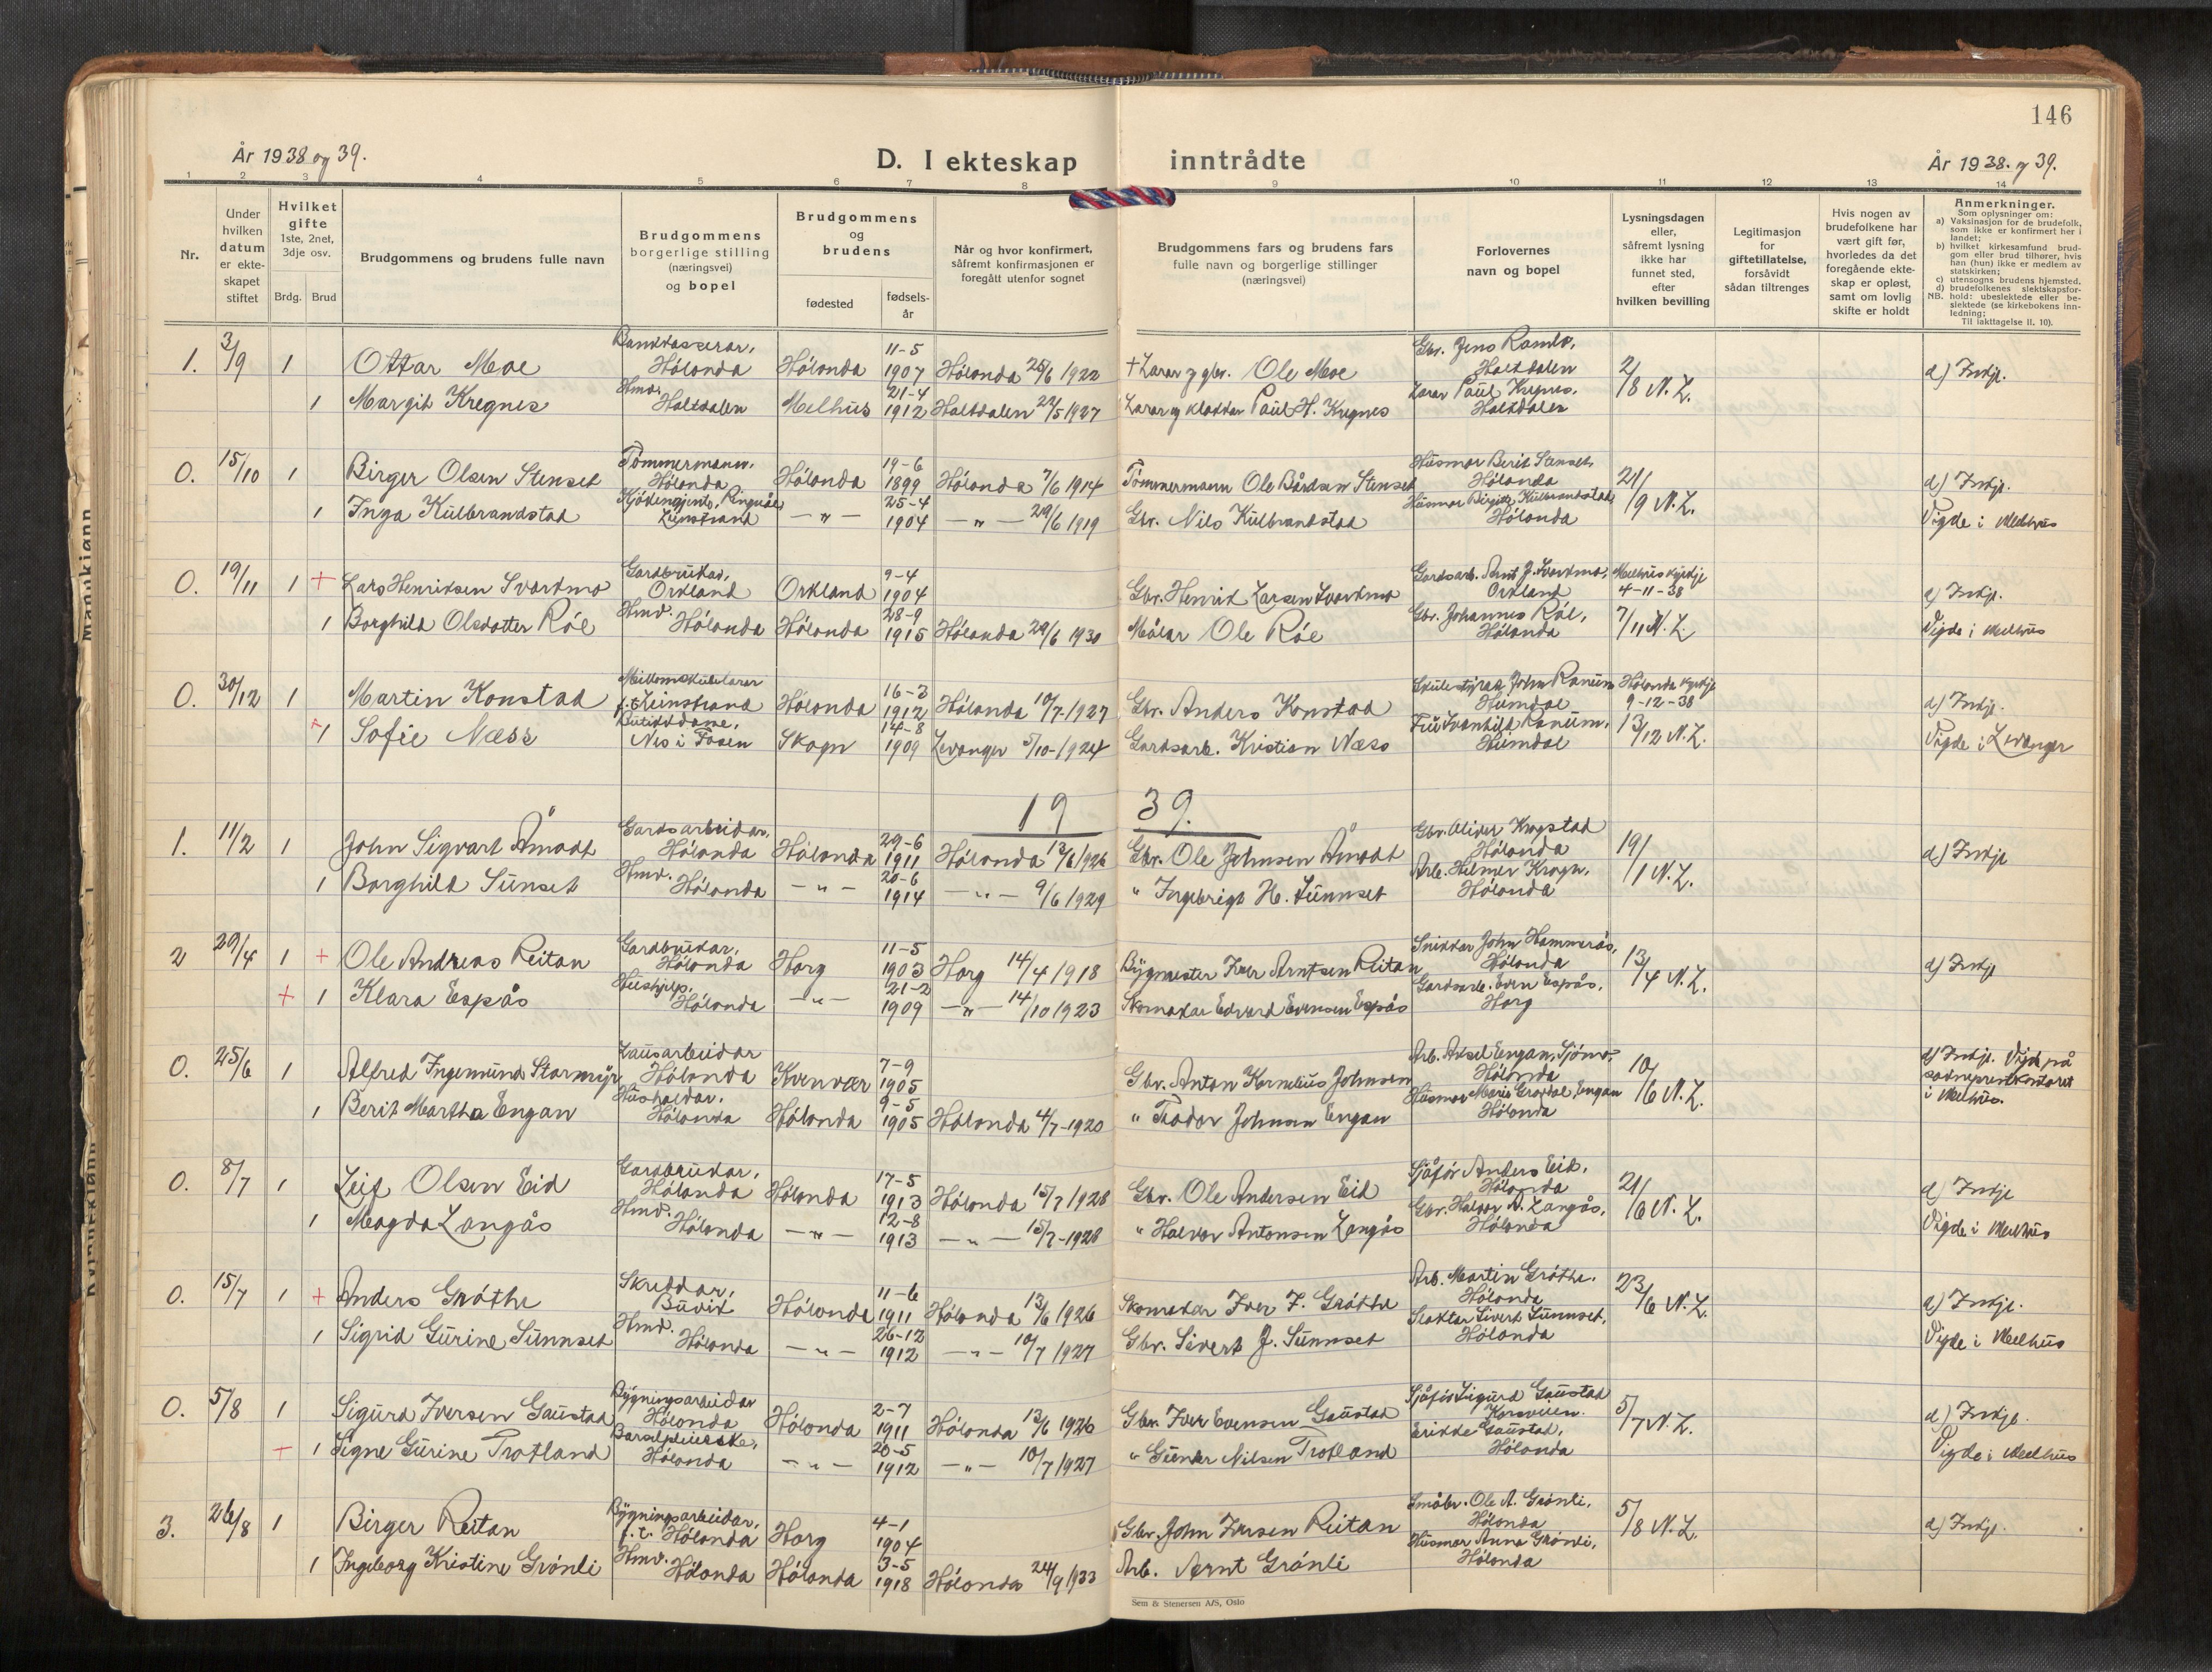 146
År 1938 og 39.
D. I ekteskap inntrådte
År 1938. og 39.
1 2 3 4 5 6 7 8 9 10 11 12 13 14
Nr.
Under hvilken datum er ekteskapet stiftet
Hvilket gifte 1ste, 2net, 3dje osv.
Brdg. Brud
Brudgommens og brudens fulle navn
Brudgommens borgerlige stilling (næringsvei) og bopel
Brudgommens og brudens
fødested
fødselsår
Når og hvor konfirmert, såfremt konfirmasjonen er foregått utenfor sognet
Brudgommens fars og brudens fars fulle navn og borgerlige stillinger (næringsvei)
Forlovernes navn og bopel
Lysningsdagen eller, såfremt lysning ikke har funnet sted, efter hvilken bevilling
Legitimasjon for giftetillatelse, forsåvidt sådan tiltrenges
Hvis nogen av brudefolkene har vært gift før, hvorledes da det foregående ekteskap er opløst, samt om lovlig skifte er holdt
Anmerkninger.
Som oplysninger om:
a) Vaksinasjon for de brudefolk, som ikke er konfirmert her i landet;
b) hvilket kirkesamfund brudgom eller brud tilhører, hvis han (hun) ikke er medlem av statskirken;
c) utensogns brudens hjemsted.
d) brudefolkenes slektskapsforhold: ubeslektede eller beslektede (se kirkebokens innledning;
NB. Til iakttagelse ll. 10).
1. 3/9 1 Ottar Moe Bankkasserar, Hølonda Hølonda 11-5 1907 Hølonda 25/6 1922 + Lærar og gbr. Ole Moe Gbr. Jens Ramlo, Haltdalen 2/8 N.L. d) Inkje.
1 Margit Kregnes Hmd. Haltdalen Melhus 21-4 1912 Haltdalen 22/5 1927 Lærar og klokkar Paul H. Kregnes Lærar Paul Kregnes, Haltdalen
0. 15/10 1 Birger Olsen Stenset Tømmermann, Hølonda Hølonda 19-6 1899 Hølonda 7/6 1914 Tømmermann Ole Bårdsen Stenset Husmor Berit Stenset, Hølonda 21/9 N.L. d) Inkje.
1 Inga Kulbrandstad Kjøkengjente, Leinstrand — " — 25-4 1904 — " — 29/6 1919 Gbr. Nils Kulbrandstad Husmor Birgitte Kulbrandstad, Hølonda Vigde i Melhus
0. 19/11 1 + Lars Henriksen Svorkmo Gardbrukar, Orkland Orkland 9-4 1904 Gbr. Henrik Larsen Svorkmo Gardsarb. Arnt J. Svorkmo, Orkland Melhus kyrkje 4-11-38 d) Inkje.
1 Borghild Olsdotter Røe Hmd. Hølonda Hølonda 28-9 1915 Hølonda 29/6 1930 Målar Ole Røe Gbr. Johannes Røe, Hølonda 7/11 N.L. Vigde i Melhus
0. 30/12 1 Martin Konstad Millomskulelærar Leinstrand Hølonda 16-3 1912 Hølonda 10/7-1927 Gbr. Anders Konstad Skulestyrar John Ranum Heimdal Hølonda kyrkje 9-12-38 d) Inkje.
+ 1 Sofie Næss Butikkdame, Nes i Fosen Skogn 14-8 1909 Levanger 5/10-1924 Gardsarb. Kristian Næss Fru Svanhild Ranum, Heimdal 13/12 N.L. Vigde i Levanger
1939.
1. 11/2 1 John Sigvart Åmodt Gardsarbeidar, Hølonda Hølonda 29-6 1911 Hølonda 13/6 1926 Gbr. Ole Johnsen Åmodt Gbr. Oliver Krogstad Hølonda 19/1 N.L. d) Inkje
1 Borghild Sunset Hmd. Hølonda — " — 20-6 1914 — " — 9/6 1929 " Ingebrigt H. Sunnset Arb. Hilmer Krogn, Hølonda
2 29/4 1 + Ole Andreas Reitan Gardbrukar, Hølonda Horg 11-5 1903 Horg 14/4 1918 Bygmester Iver Arntsen Reitan Snikkar John Hammerås, Hølonda 13/4 N.L. d) Inkje
+ 1 Klara Espås Hushjelp, Hølonda — " — 21-2 1909 — " — 14/10 1923 Skomakar Edvard Evensen Espås Gardsarb. Even Espås, Horg
0. 25/6 1 Alfred Ingemund Stormyr Lausarbeidar Hølonda Kvenvær 7-9 1905 Gbr. Anton Kornelius Johnsen Arb. Aksel Engan, Hølonda 10/6 N.L. d) Inkje. Vigde på sokneprestkontoret i Melhus.
1 Berit Martha Engan Hushaldar, Hølonda Hølonda 9-5 1905 Hølonda 4/7-1920 " Teodor Johnsen Engan Husmor Marie Engan Hølonda
0. 8/7 1 Leif Olsen Eid Gardbrukar, Hølonda Hølonda 17-5 1913 Hølonda 15/7 1928 Gbr. Ole Andersen Eid Sjåfør Anders Eid, Hølonda 21/6 N.L. d) Inkje
1 Magda Langås Hmd. Hølonda — " — 12-8 1913 — " — 15/7-1928 " Halvor Antonsen Langås Gbr. Halvor A. Langås, Hølonda Vigde i Melhus
0. 15/7 1 + Anders Grøthe Skreddar, Buvik Hølonda 11-6 1911 Hølonda 13/6 1926 Skomakar Iver F. Grøthe Arb. Martin Grøthe, Hølonda 23/6 N.L. d) Inkje.
1 Sigrid Gurine Sunnset Hmd. Hølonda — " — 26-12 1912 — " — 10/7 1927 Gbr. Sivert J. Sunnset Slaktar Sivert Sunnset, Hølonda Vigde i Melhus
0. 5/8 1 Sigurd Iversen Gaustad Bygningsarbeidar Hølonda Hølonda 2-7 1911 Hølonda 13/6 1926 Gbr. Iver Evensen Gaustad Sjåfør Sigurd Gaustad Korsveien. 5/7 N.L. d) Inkje.
+ 1 Signe Gurine Trotland Barselpleierske, Hølonda — " — 20-5 1912 — " — 10/7 1927 " Gunder Nilsen Trotland Erikke Gaustad, Hølonda Vigde i Melhus
3. 26/8 1 Birger Reitan Bygningsarbeidar, f.t. Hølonda Horg 4-1 1904 Gbr. John Iversen Reitan Småbr. Ole A. Grønli, Hølonda 5/8 N.L. d) Inkje.
1 Ingeborg Kristine Grønli Hmd. Hølonda Hølonda 3-5 1918 Hølonda 24/9 1933 Arb. Arnt Grønli Husmor Anna Grønli, Hølonda
Sem & Stenersen A/S, Oslo